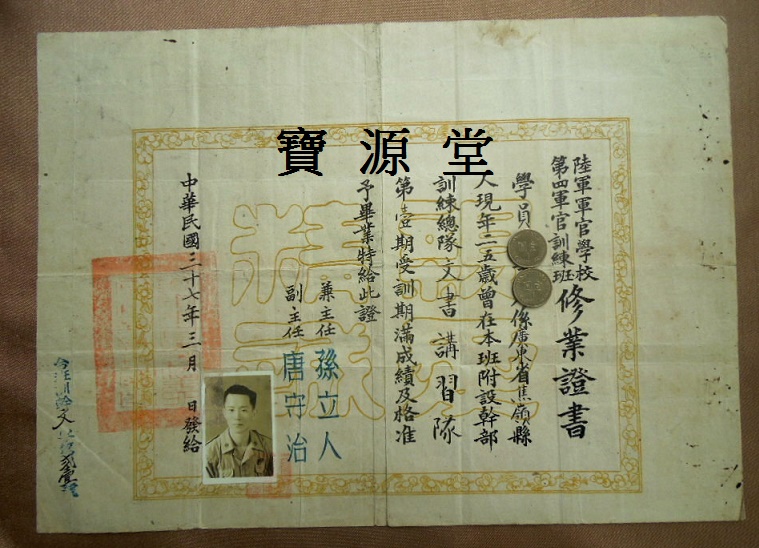 寶源堂
陸軍軍官學校
第四軍官訓練班
修業證書
學員
係廣東省蕉嶺縣
人現年二五歲曾在本班附設幹部
訓練總隊文書講習隊
第壹期受訓期滿成績及格准
予畢業特給此證
兼主任 孫立人
副主任 唐守治
中華民國三十七年三月 日發給